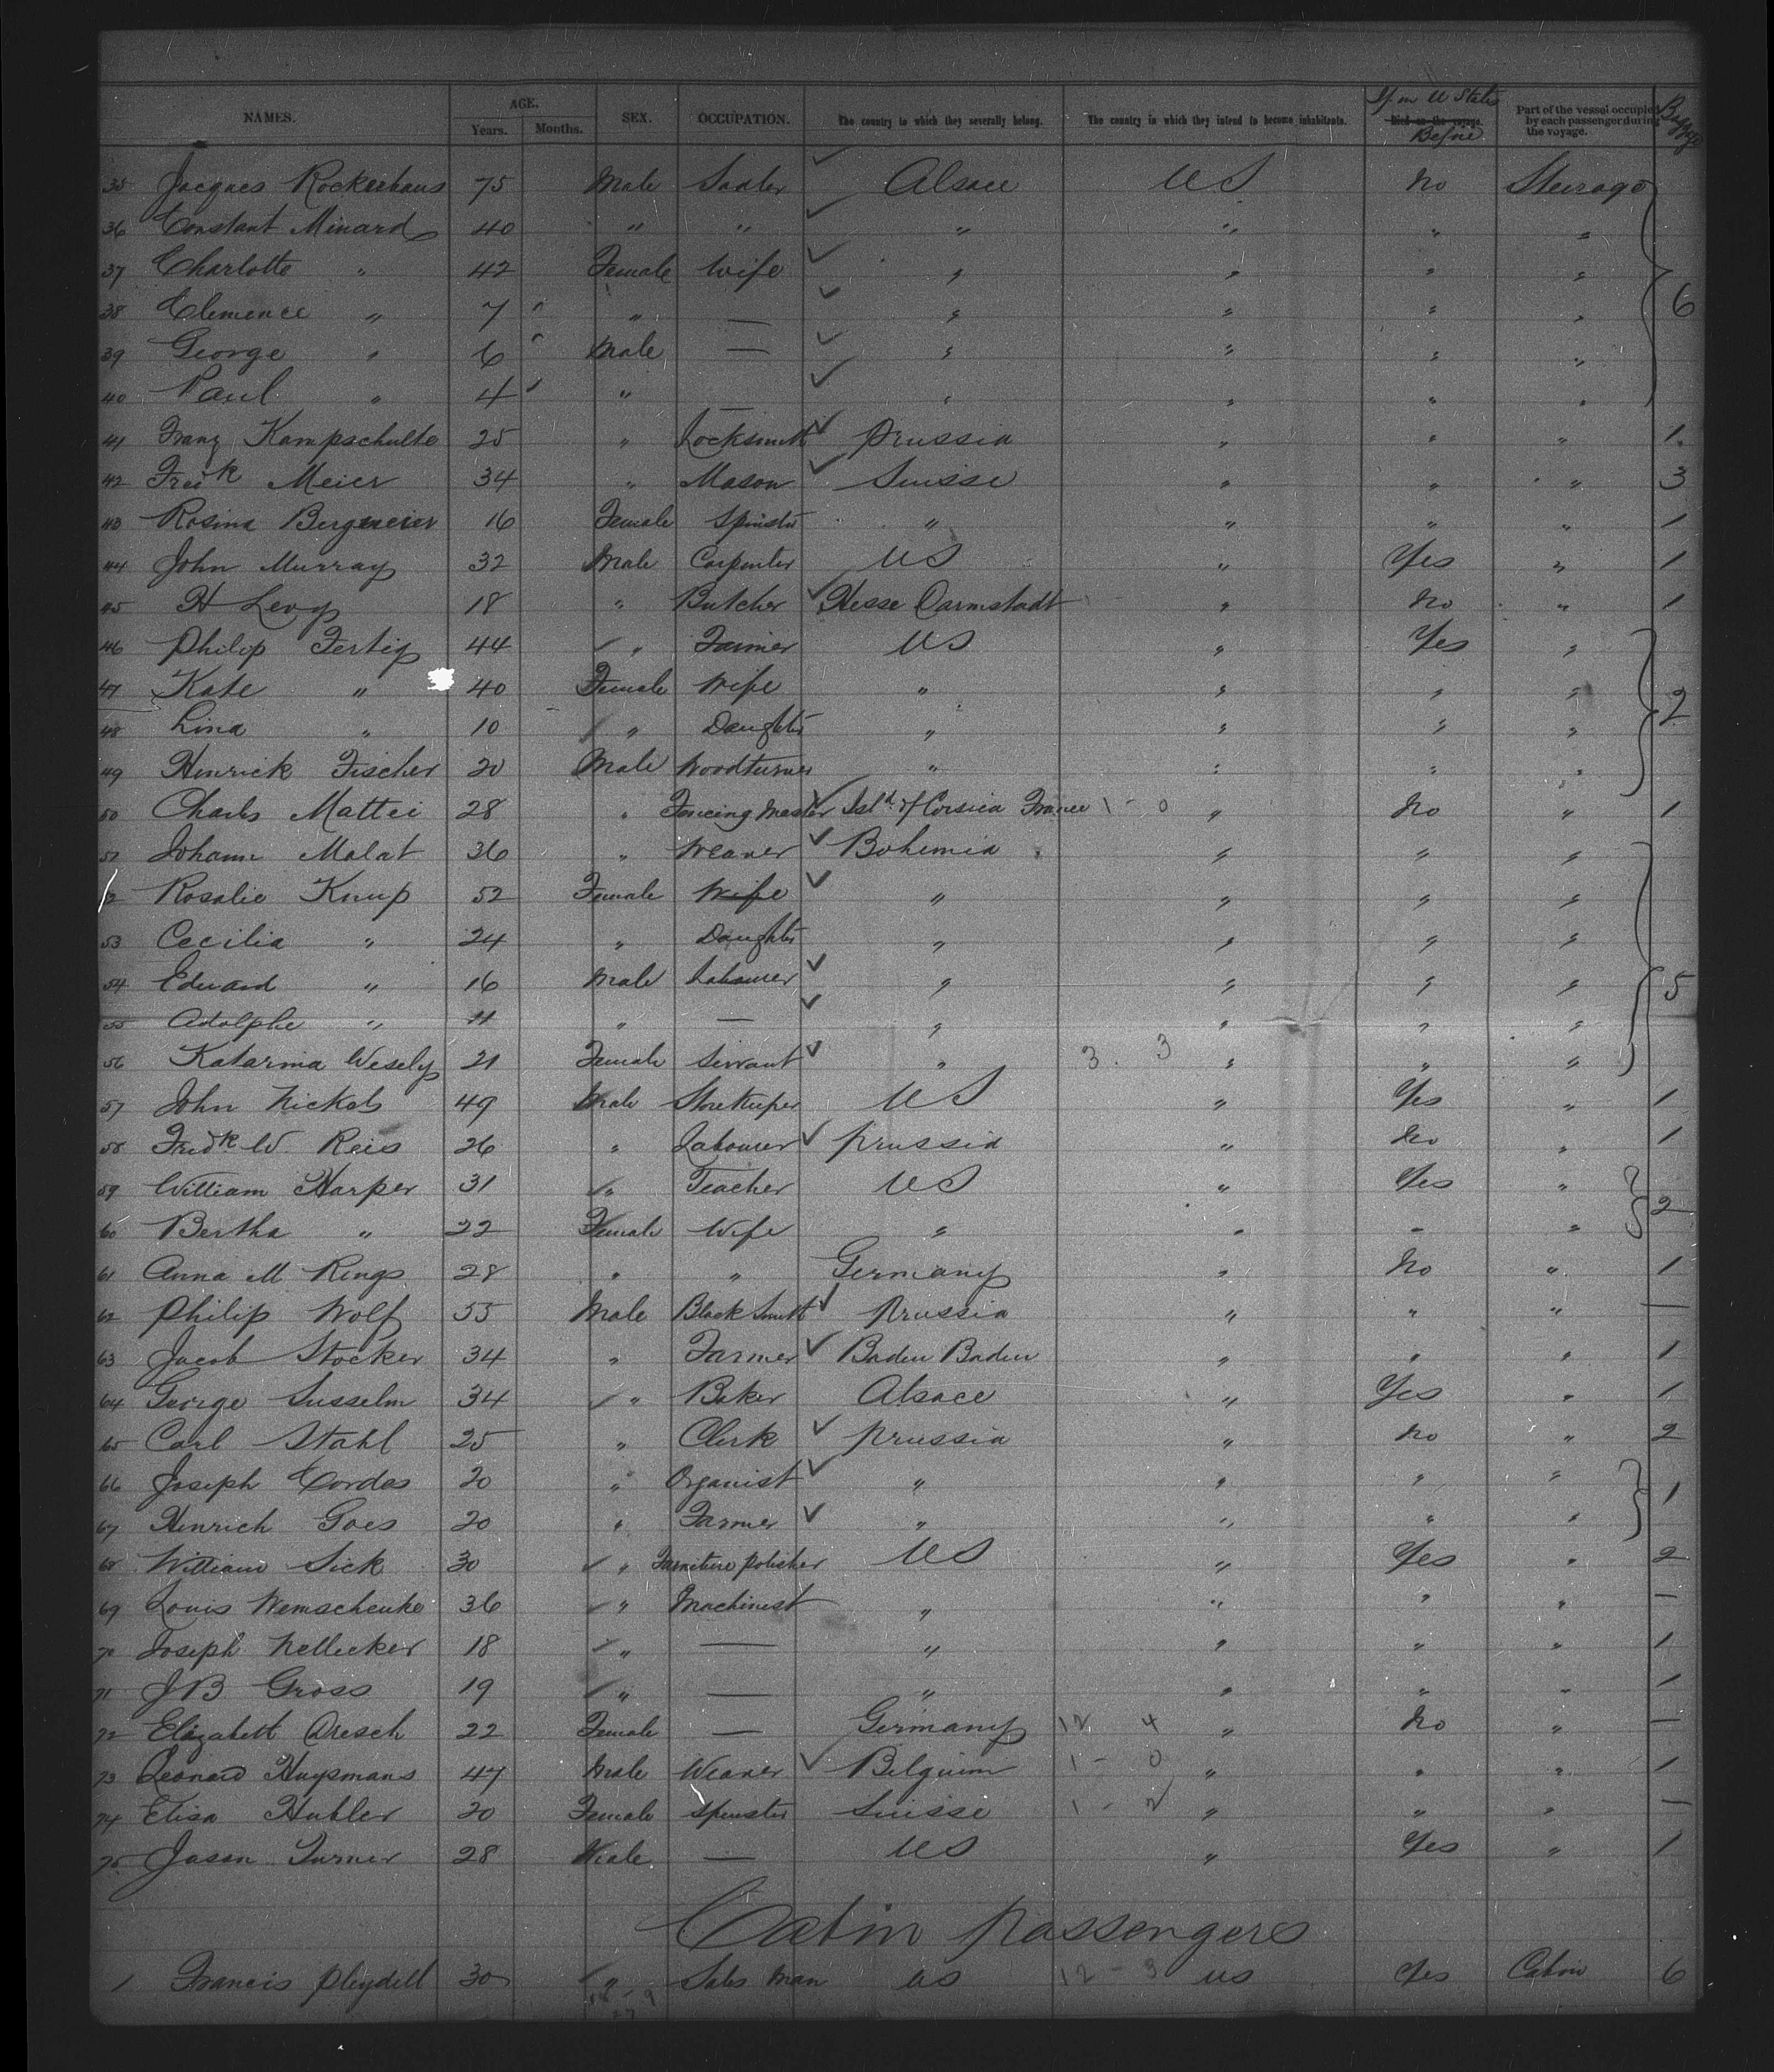 NAMES. AGE. Years. Months. SEX. OCCUPATION. The country to which they severally belong. The country in which they intend to become inhabitants. If in U States Died on the voyage. Before Part of the vessel occupied by each passenger during the voyage. Baggage
35 Jacques Rockerhaus 75 Male Sadler Alsace US No Steerage
36 Constant Minard 40 " " " " " "
37 Charlotte " 42 Female Wife " " " "
38 Clemence " 7 " — " " " " 6
39 George " 6 Male — " " " "
40 Paul " 4 " — " " " "
41 Franz Kampschulte 25 " Locksmith Prussia " " " 1
42 Fredk Meier 34 " Mason Suisse " " " 3
43 Rosina Bergmeier 16 Female Spinster " " " " 1
44 John Murray 32 Male Carpenter US " Yes " 1
45 H Levy 18 " Butcher Hesse Darmstadt " No " 1
46 Philip Fertig 44 " Farmer US " Yes "
47 Kate " 40 Female Wife " " " " 2
48 Lina " 10 " Daughter " " " "
49 Hinrick Fischer 20 Male Woodturner " " " "
50 Charles Mattei 28 " Fencing Master Isld of Corsica France 1 - 0 " No " 1
51 Johann Malat 36 " Weaver Bohemia " " "
52 Rosalie Knup 52 Female Wife " " " "
53 Cecilia " 24 " Daughter " " " "
54 Edward " 16 Male Labourer " " " " 5
55 Adolphe " 11 " — " " " "
56 Katarina Wesely 21 Female Servant " 3. 3 " " "
57 John Nickols 49 Male Storekeeper US " Yes " 1
58 Fredk W. Reis 26 " Labourer Prussia " No " 1
59 William Harper 31 " Teacher US " Yes "
60 Bertha " 22 Female Wife " " " " 2
61 Anna M Rings 28 " " Germany " No " 1
62 Philip Wolf 55 Male Black Smith Prussia " " " —
63 Jacob Stocker 34 " Farmer Baden Baden " " " 1
64 George Susselm 34 " Baker Alsace " Yes " 1
65 Carl Stahl 25 " Clerk Prussia " No " 2
66 Joseph Cordes 20 " Organist " " " " 1
67 Hinrich Goes 20 " Farmer " " " "
68 William Sick 30 " Furniture polisher US " Yes " 2
69 Louis Wemschenke 36 " Machinist " " " " —
70 Joseph Nellecker 18 " — " " " " 1
71 J B Gross 19 " — " " " " 1
72 Elizabeth Dresch 22 Female — Germany 12 4 " No " —
73 Leonard Huysmans 47 Male Weaver Belgium 1 - 0 " " " 1
74 Elisa Hubler 20 Female Spinster Suisse 1 - 2 " " " —
75 Jason Turner 28 Male — US " Yes " 1
Cabin Passengers
1 Francis Pleydell 30 " Sales Man US 12 - 3 US Yes Cabin 6